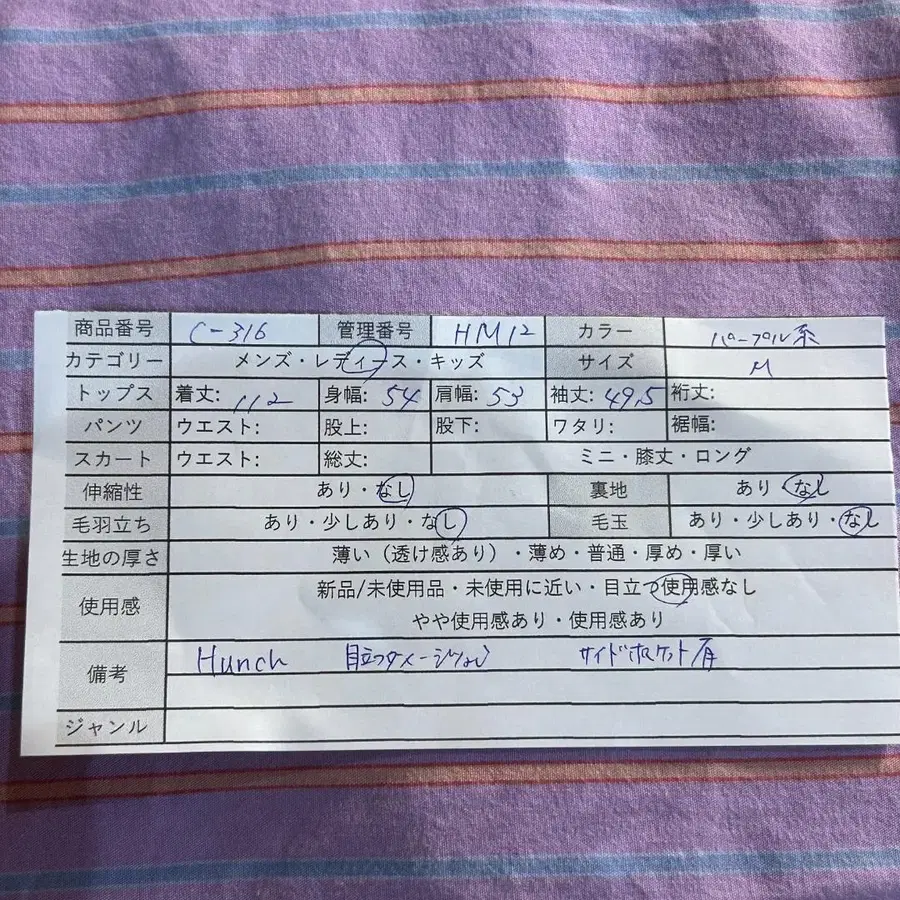 商品番号 C-316 管理番号 HM12 カラー パープル系
カテゴリー メンズ・レディース・キッズ サイズ M
トップス 着丈: 112 身幅: 54 肩幅: 53 袖丈: 49.5 裄丈:
パンツ ウエスト: 股上: 股下: ワタリ: 裾幅:
スカート ウエスト: 総丈: ミニ・膝丈・ロング
伸縮性 あり・なし 裏地 あり・なし
毛羽立ち あり・少しあり・なし 毛玉 あり・少しあり・なし
生地の厚さ 薄い（透け感あり）・薄め・普通・厚め・厚い
使用感 新品/未使用品・未使用に近い・目立つ使用感なし
やや使用感あり・使用感あり
備考 Hunch 目立つダメージなし サイドポケット有
ジャンル